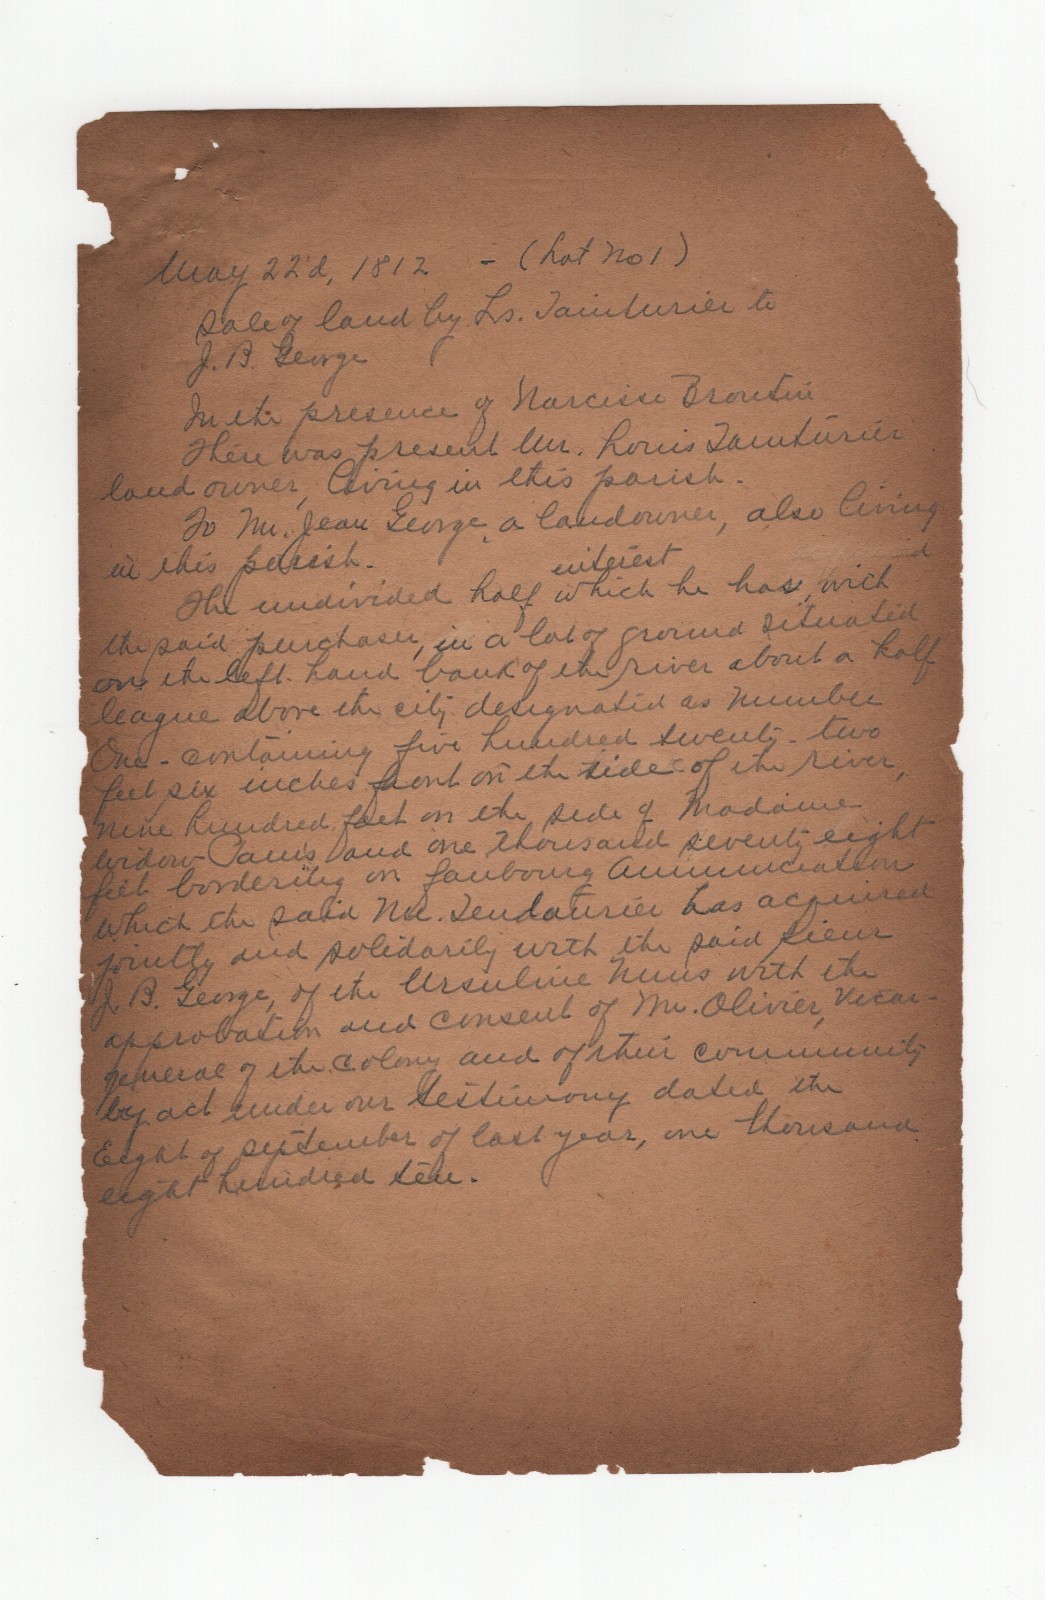 May 22'd, 1812 - (Lot No 1)
Sale of land by Ls. Tainturier to
J. B. George
In the presence of Narcisse Broutin
There was present Mr. Louis Tainturier
land owner, living in this parish.
To Mr. Jean George, a landowner, also living
in this parish.
interest
The undivided half which he has, with
the said purchaser, in a lot of ground situated
on the left hand bank of the river about a half
league above the city designated as number
One - containing five hundred seventy-two
feet six inches front on the side of the river,
nine hundred feet on the side of Madame
widow and one thousand seventy eight
feet bordering on faubourg Annunciation
which the said Mr. has acquired
jointly and solidarily with the said Sieur
J. B. George, of the Ursuline Nuns with the
approbation and consent of Mr. Olivier, Vicar-
general of the colony and of their community
by act under our testimony dated the
Eight of september of last year, one thousand
eight hundred ten.